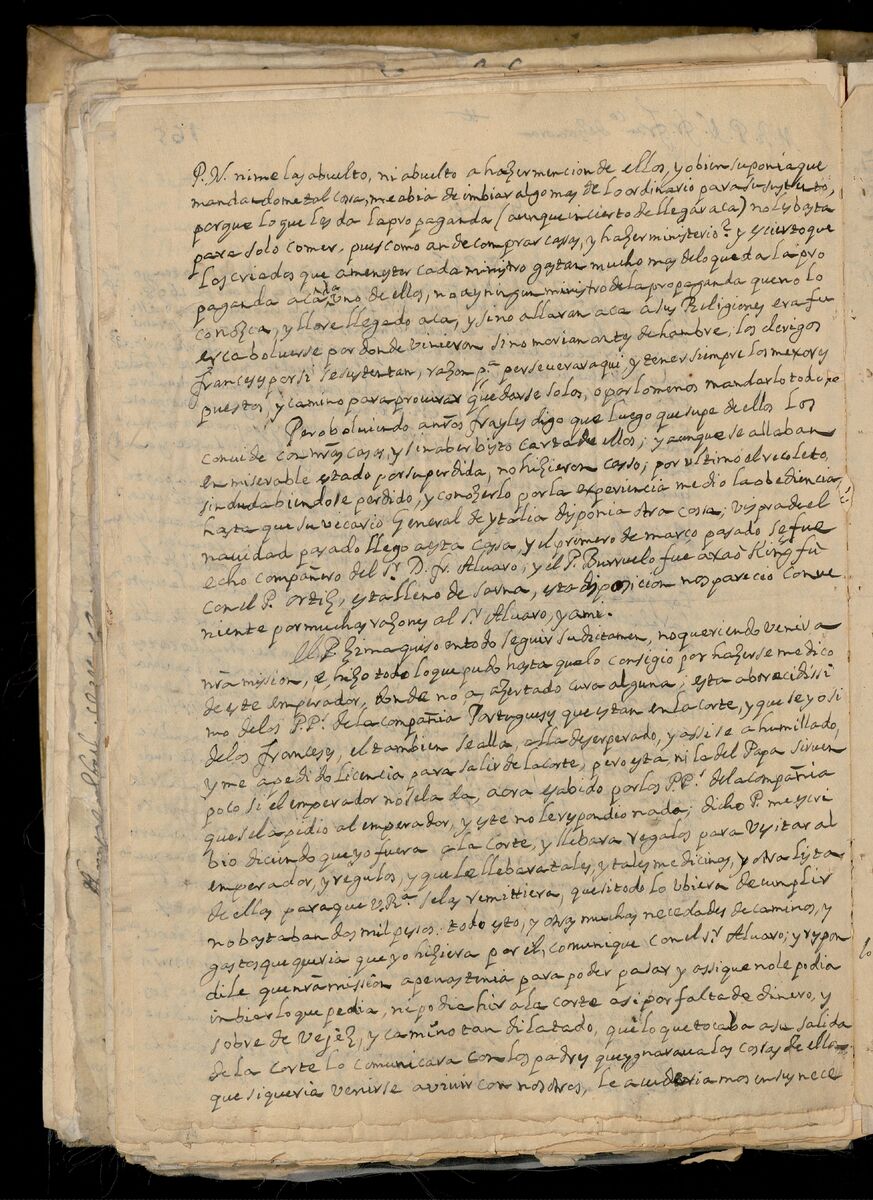 P. N. ni me las abuelto, ni abuelto a hazer mencion de ellos, y obien suponia que
mandandome tal cosa, me abia de imbiar algo mas de lo ordinario para su sustento,
porque lo que les da la propaganda (aunque incierto de llegar aca) no les basta
para solo comer, pues como an de comprar casas, y hazer ministerio? y es cierto que
los criados que a menester cada ministro gastan mucho mas de lo que da la pro
paganda a cada uno de ellos, no ay ningun ministro de la propaganda que no lo
conozca, y llore llegado aca, y si no allaran aca a sus Religiones era fu
erca bolverse por donde vinieron si no morian antes de hambre, los clerigos
franceses por si se sustentan, razon pa. perseverar aqui, y tener siempre los mexores
puestos, y camino para procurar quedarse solos, o por lo menos mandarlo todo
Pero bolviendo a nros frayles digo que luego que supe de ellos los
convide con nras casas, y sin aber bisto carta de ellos; y aunque se allaban
en miserable estado por su perdida, no hizieron casso; por ultimo el recoleto,
sin duda biendose perdido, y conozerlo por la experiencia me dio la obediencia
hasta que su vecario General de ytalia disponia otra cossa; vispra de el
navidad pasado llego a esta cassa, y el primero de março pasado se fue
echo compañero del Sr. D. fr. Alvaro; y el P. Burruelo fue a xao King fu
con el P. ortiz, esta lleno de sarna, esta disposicion nos parecio conve
niente por muchas razones al Sr. Alvaro, y a mi.
El P. Zima quiso en todo seguir su dictamen, no queriendo venir a
nra mission, e hizo todo lo que pudo hasta que lo consigio por hazerse medico
de este emperador, donde no a azertado cura alguna; esta aborrecidissi
mo de los P.Ps. de la compañia Portugueses que estan en la corte, y que se yo si
de los franceses, el tambien se alla, alla desesperado, y assi se a humillado,
y me a pedido licencia para salir de la corte, pero esta, ni la del Papa sirven
poco si el emperador no se la da, aora e sabido por los P.Ps. de la compañia
que se la pidio al emperador, y este no le respondio nada; dicho P. me escri
bio diciendo que yo fuera a la corte, y llebara regalos para visitar al
emperador, y regulos, y que le llebara tales, y tales medicinas, y otra lista
de ellas para que V.Ra. se las remittiera, que si todo lo ubiera de cumplir
no bastaban dos mil pesos: todo esto, y otras muchas necedades de caminos, y
gastos que queria que yo hiziera por el, comunique con el Sr. Alvaro; y respon
dile que nra mission apenas tenia para poder pasar y assi que no le podia
imbiar lo que pedia, ni podia hir a la corte asi por falta de dinero, y
sobre de vejez, y camino tan dilatado, que lo que tocaba a su salida
de la corte lo comunicara con los padres que ygnorava las cosas de ella
que si queria venirse a vivir con nosotros, le acuderiamos en sus nece